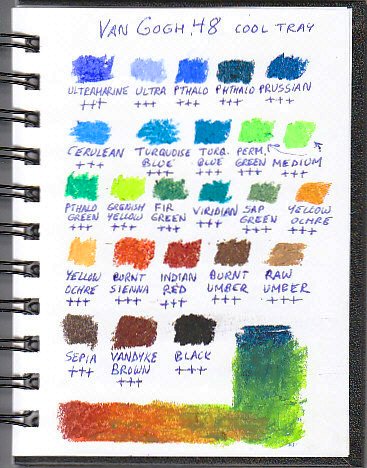 VAN GOGH. 48 COOL TRAY
ULTRAMARINE ULTRA PTHALO PHTHALO PRUSSIAN
+++ +++ +++ +++ +++
CERULEAN TURQUOISE TURQ. PERM.
+++ BLUE BLUE GREEN MEDIUM
+++ +++ +++ +++
PTHALO GRENISH FIR VIRIDIAN SAP YELLOW
GREEN YELLOW GREEN +++ GREEN OCHRE
+++ +++ +++ +++ +++
YELLOW BURNT INDIAN BURNT RAW
OCHRE SIENNA RED UMBER UMBER
+++ +++ +++ +++ +++
SEPIA VANDYKE BLACK
+++ BROWN +++
+++